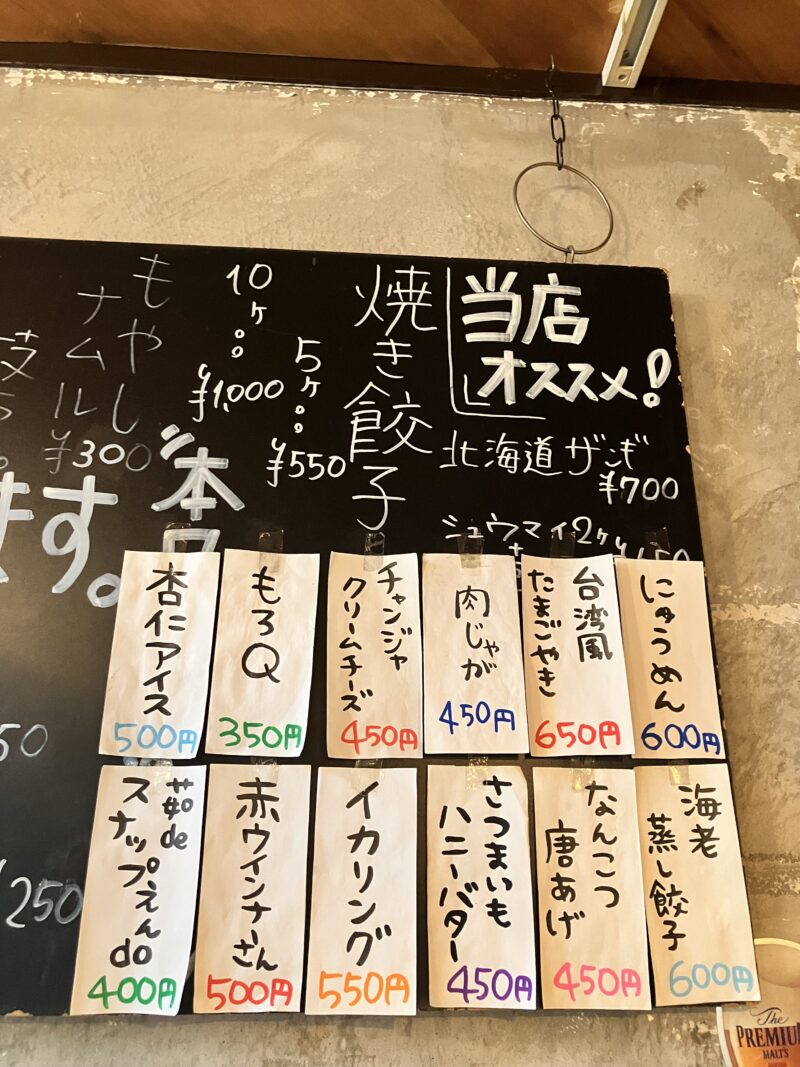 当店
オススメ!
北海道ザンギ
¥700
シュウマイ2ヶ
焼き餃子
5ヶ。。
¥550
10ヶ。。
¥1,000
もやし
ナムル
¥300
本
ます。
にゅうめん
600円
台湾風
たまごやき
650円
肉じゃが
450円
チャンジャ
クリームチーズ
450円
もろQ
350円
杏仁アイス
500円
海老
蒸し餃子
600円
なんこつ
唐あげ
450円
さつまいも
ハニーバター
450円
イカリング
550円
赤ウインナーさん
500円
茹de
スナップえんdo
400円
50
250
The
PREMIUM
MALT'S